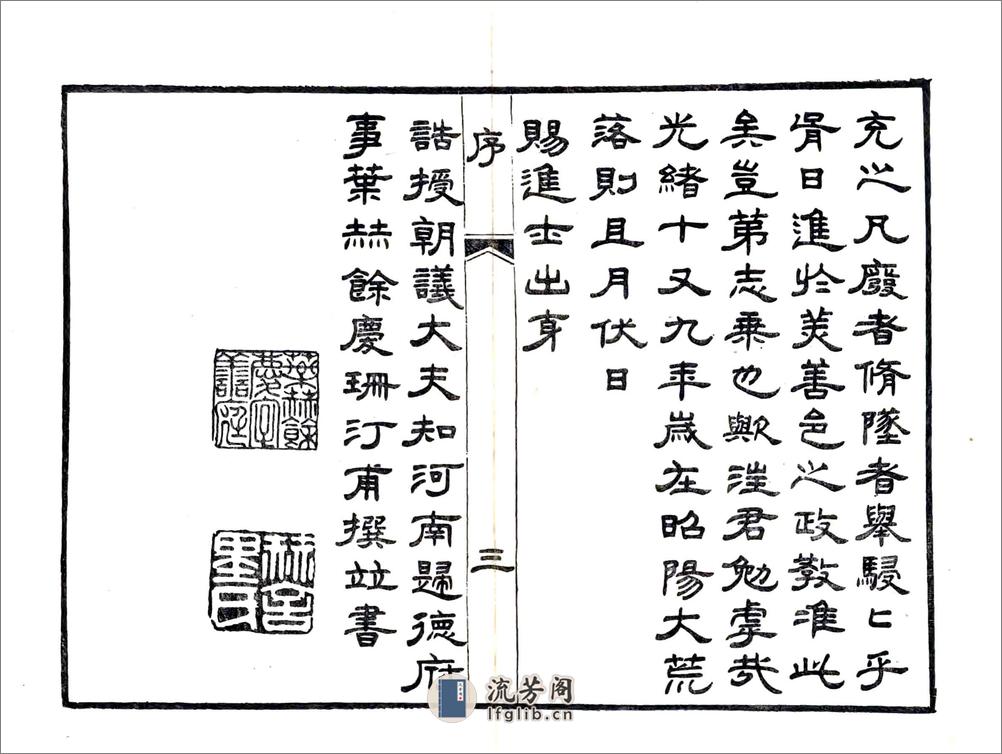 充之凡廢者脩墜者舉駸〻乎
胥日進於美善邑之政教准此
矣豈第志乗也歟汪君勉虖哉
光緒十又九年歲在昭陽大荒
落則且月伏日
賜進士出身
序 三
誥授朝議大夫知河南歸德府
事葉赫餘慶珊汀甫撰竝書
流芳阁
lfglib.cn